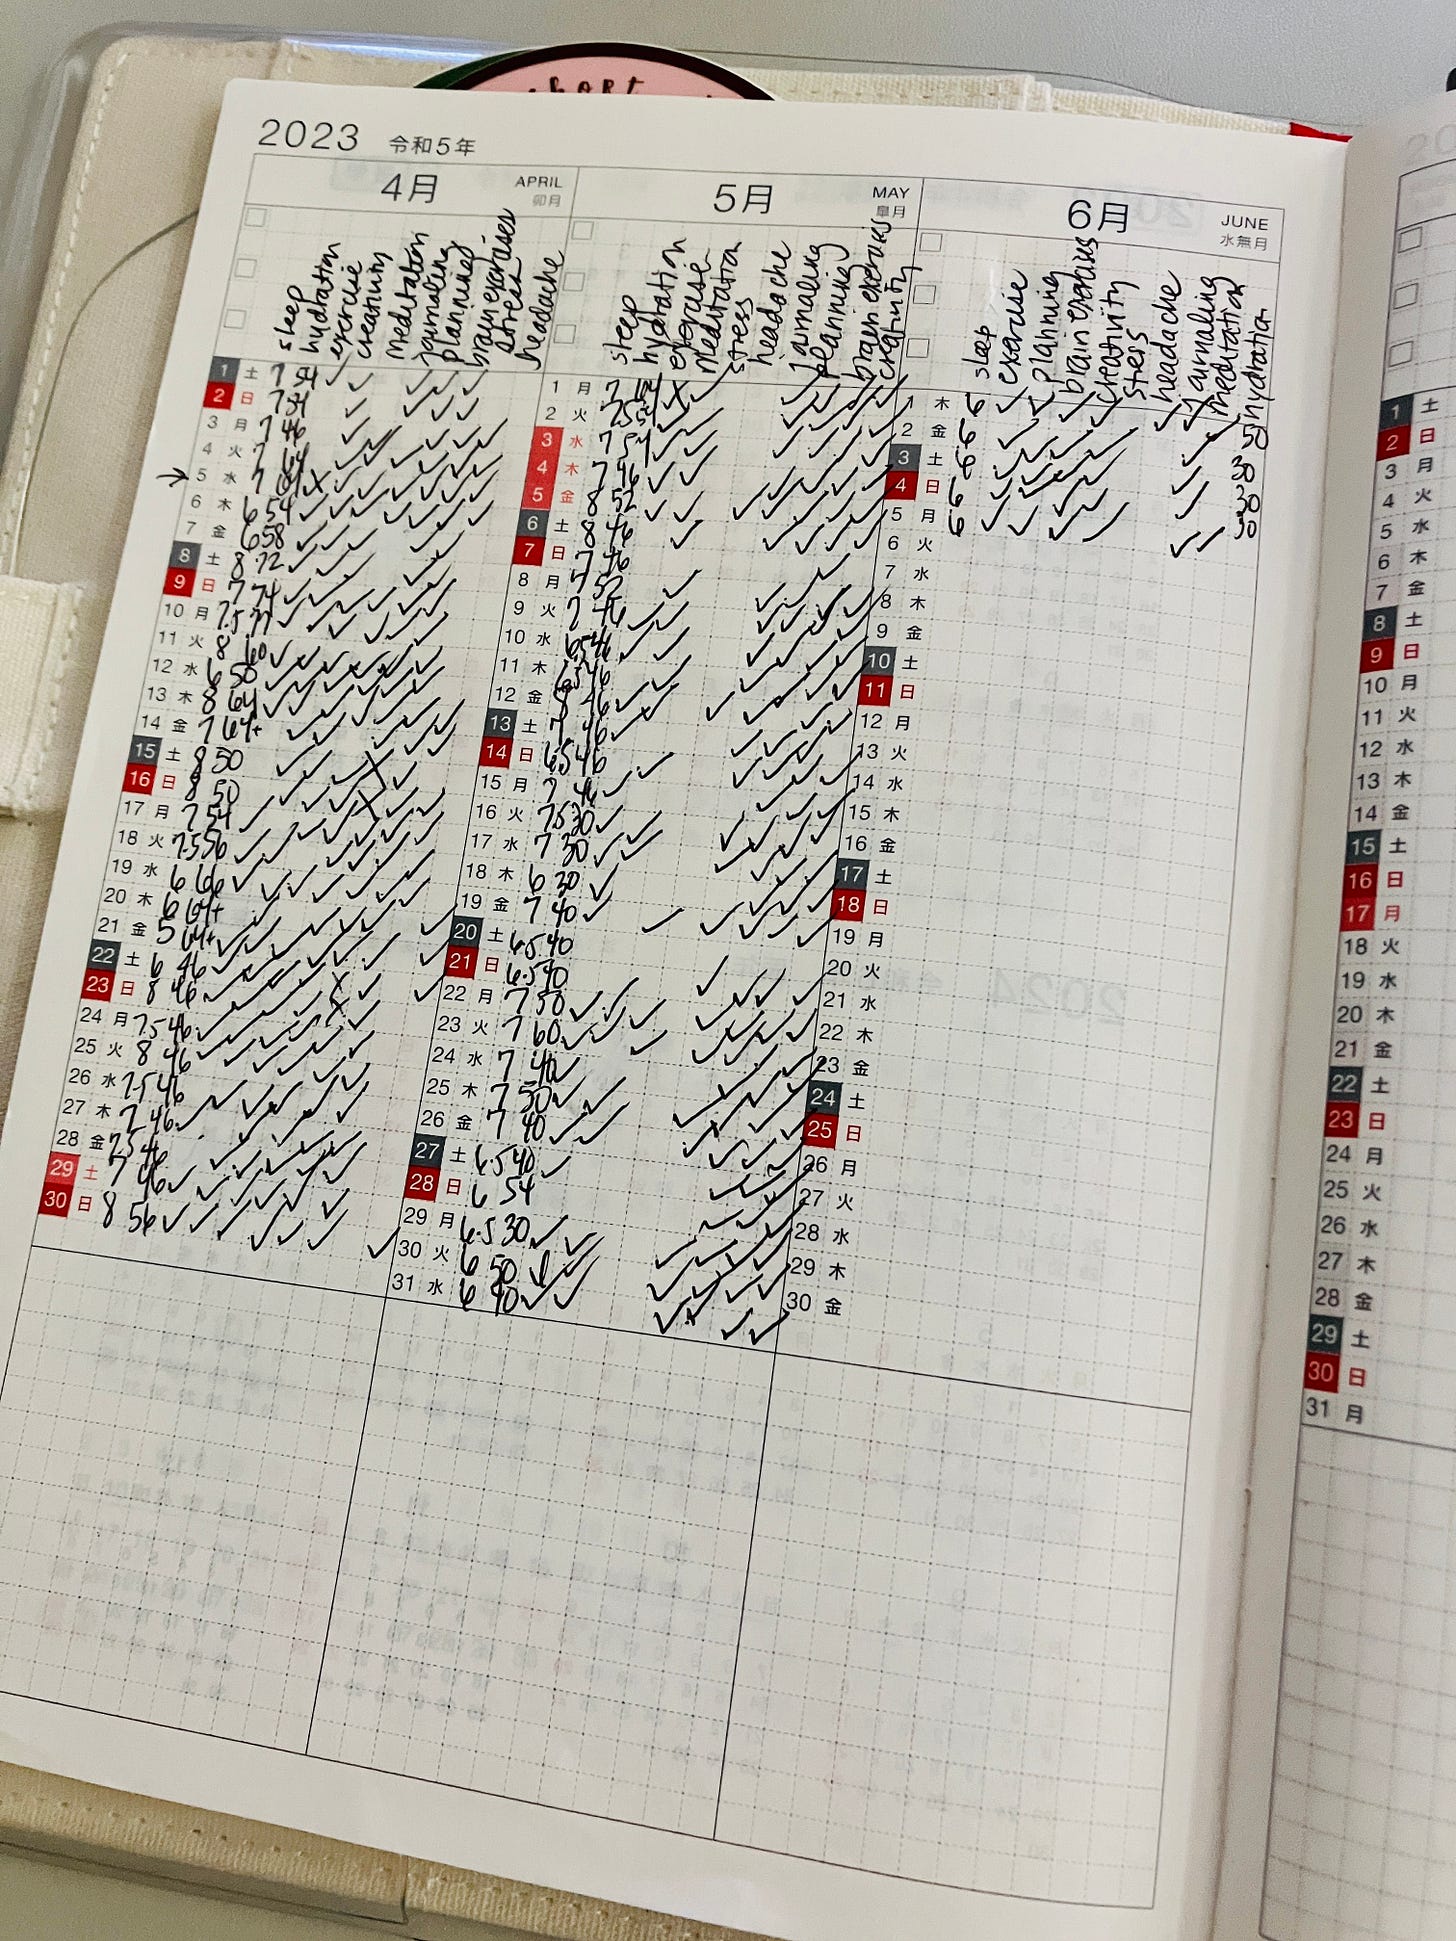 short
2023 令和5年
4月 APRIL 卯月
sleep
hydration
exercise
creativity
meditation
journaling
planning
brain exercises
stress
headache
1 土 7 54 ✓ ✓ ✓ ✓ ✓
2 日 7 54
3 月 7 46
4 火 7 64
→ 5 水 7 64
6 木 6 54
7 金 6 58
8 土 8 72
9 日 7 74
10 月 7.5 77
11 火 8 60
12 水 6 50
13 木 8 64
14 金 7 64+
15 土 8 50
16 日 8 50
17 月 7 54
18 火 7.5 56
19 水 6 66
20 木 6 64+
21 金 5 64+
22 土 6 46
23 日 8 46
24 月 7.5 46
25 火 8 46
26 水 7.5 46
27 木 7 46
28 金 7.5 46
29 土 7 46
30 日 8 56
5月 MAY 皐月
sleep
hydration
exercise
meditation
stress
headache
journaling
planning
brain exercises
creativity
1 月 7 64
2 火 7.5 54
3 水 7 54
4 木 7 46
5 金 8 52
6 土 8 46
7 日 7 46
8 月 7 52
9 火 7 46
10 水 6.5 46
11 木 6.5 46
12 金 8 46
13 土 7 46
14 日 6.5 46
15 月 7 46
16 火 7.5 30
17 水 7 30
18 木 6 30
19 金 7 40
20 土 6.5 40
21 日 6.5 40
22 月 7 50
23 火 7 60
24 水 7 40
25 木 7 50
26 金 7 40
27 土 6.5 40
28 日 6 54
29 月 6.5 30
30 火 6 50
31 水 6 40
6月 JUNE 水無月
sleep
exercise
planning
brain exercises
creativity
stress
headache
journaling
meditation
hydration
1 木 6 50
2 金 6 30
3 土 6 30
4 日 6 30
5 月 6
6 火
7 水
8 木
9 金
10 土
11 日
12 月
13 火
14 水
15 木
16 金
17 土
18 日
19 月
20 火
21 水
22 木
23 金
24 土
25 日
26 月
27 火
28 水
29 木
30 金
20
1 土
2 日
3 月
4 火
5 水
6 木
7 金
8 土
9 日
10 月
11 火
12 水
13 木
14 金
15 土
16 日
17 月
18 火
19 水
20 木
21 金
22 土
23 日
24 月
25 火
26 水
27 木
28 金
29 土
30 日
31 月